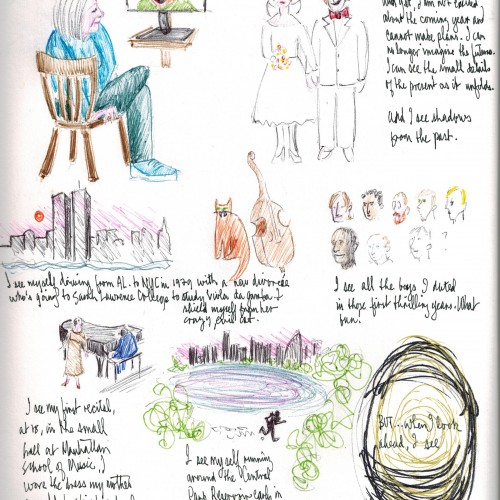 and yet, I am not excited
about the coming year and
cannot make plans. I can
no longer imagine the future.
I can see the small details
of the present as it unfolds.
And I see shadows
from the past.
I see myself driving from AL. to NYC in 1979 with a new divorcée
who's going to Sarah Lawrence College to study viola da gamba. I
shield myself from her
crazy evil cat.
I see all the boys I dated
in those first thrilling years. What
fun.
I see my first recital,
at 18, in the small
hall at Manhattan
School of Music,
wore the dress my mother
I see myself running
around the Central
Park Reservoir early in
BUT...when I look
ahead, I see